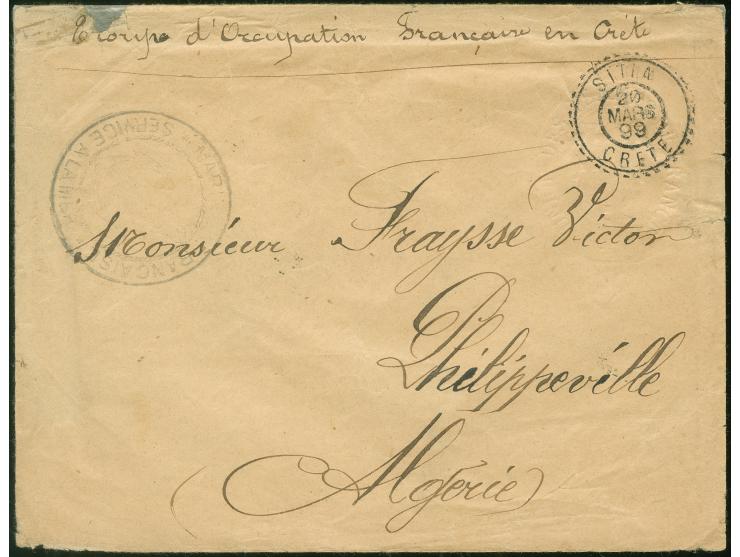 Troupe d'Occupation Française en Crète
SITIA
20
MARS
99
CRETE
SERVICE A LA MER
FRANÇAIS
Monsieur Fraysse Victor
Philippeville
(Algérie)